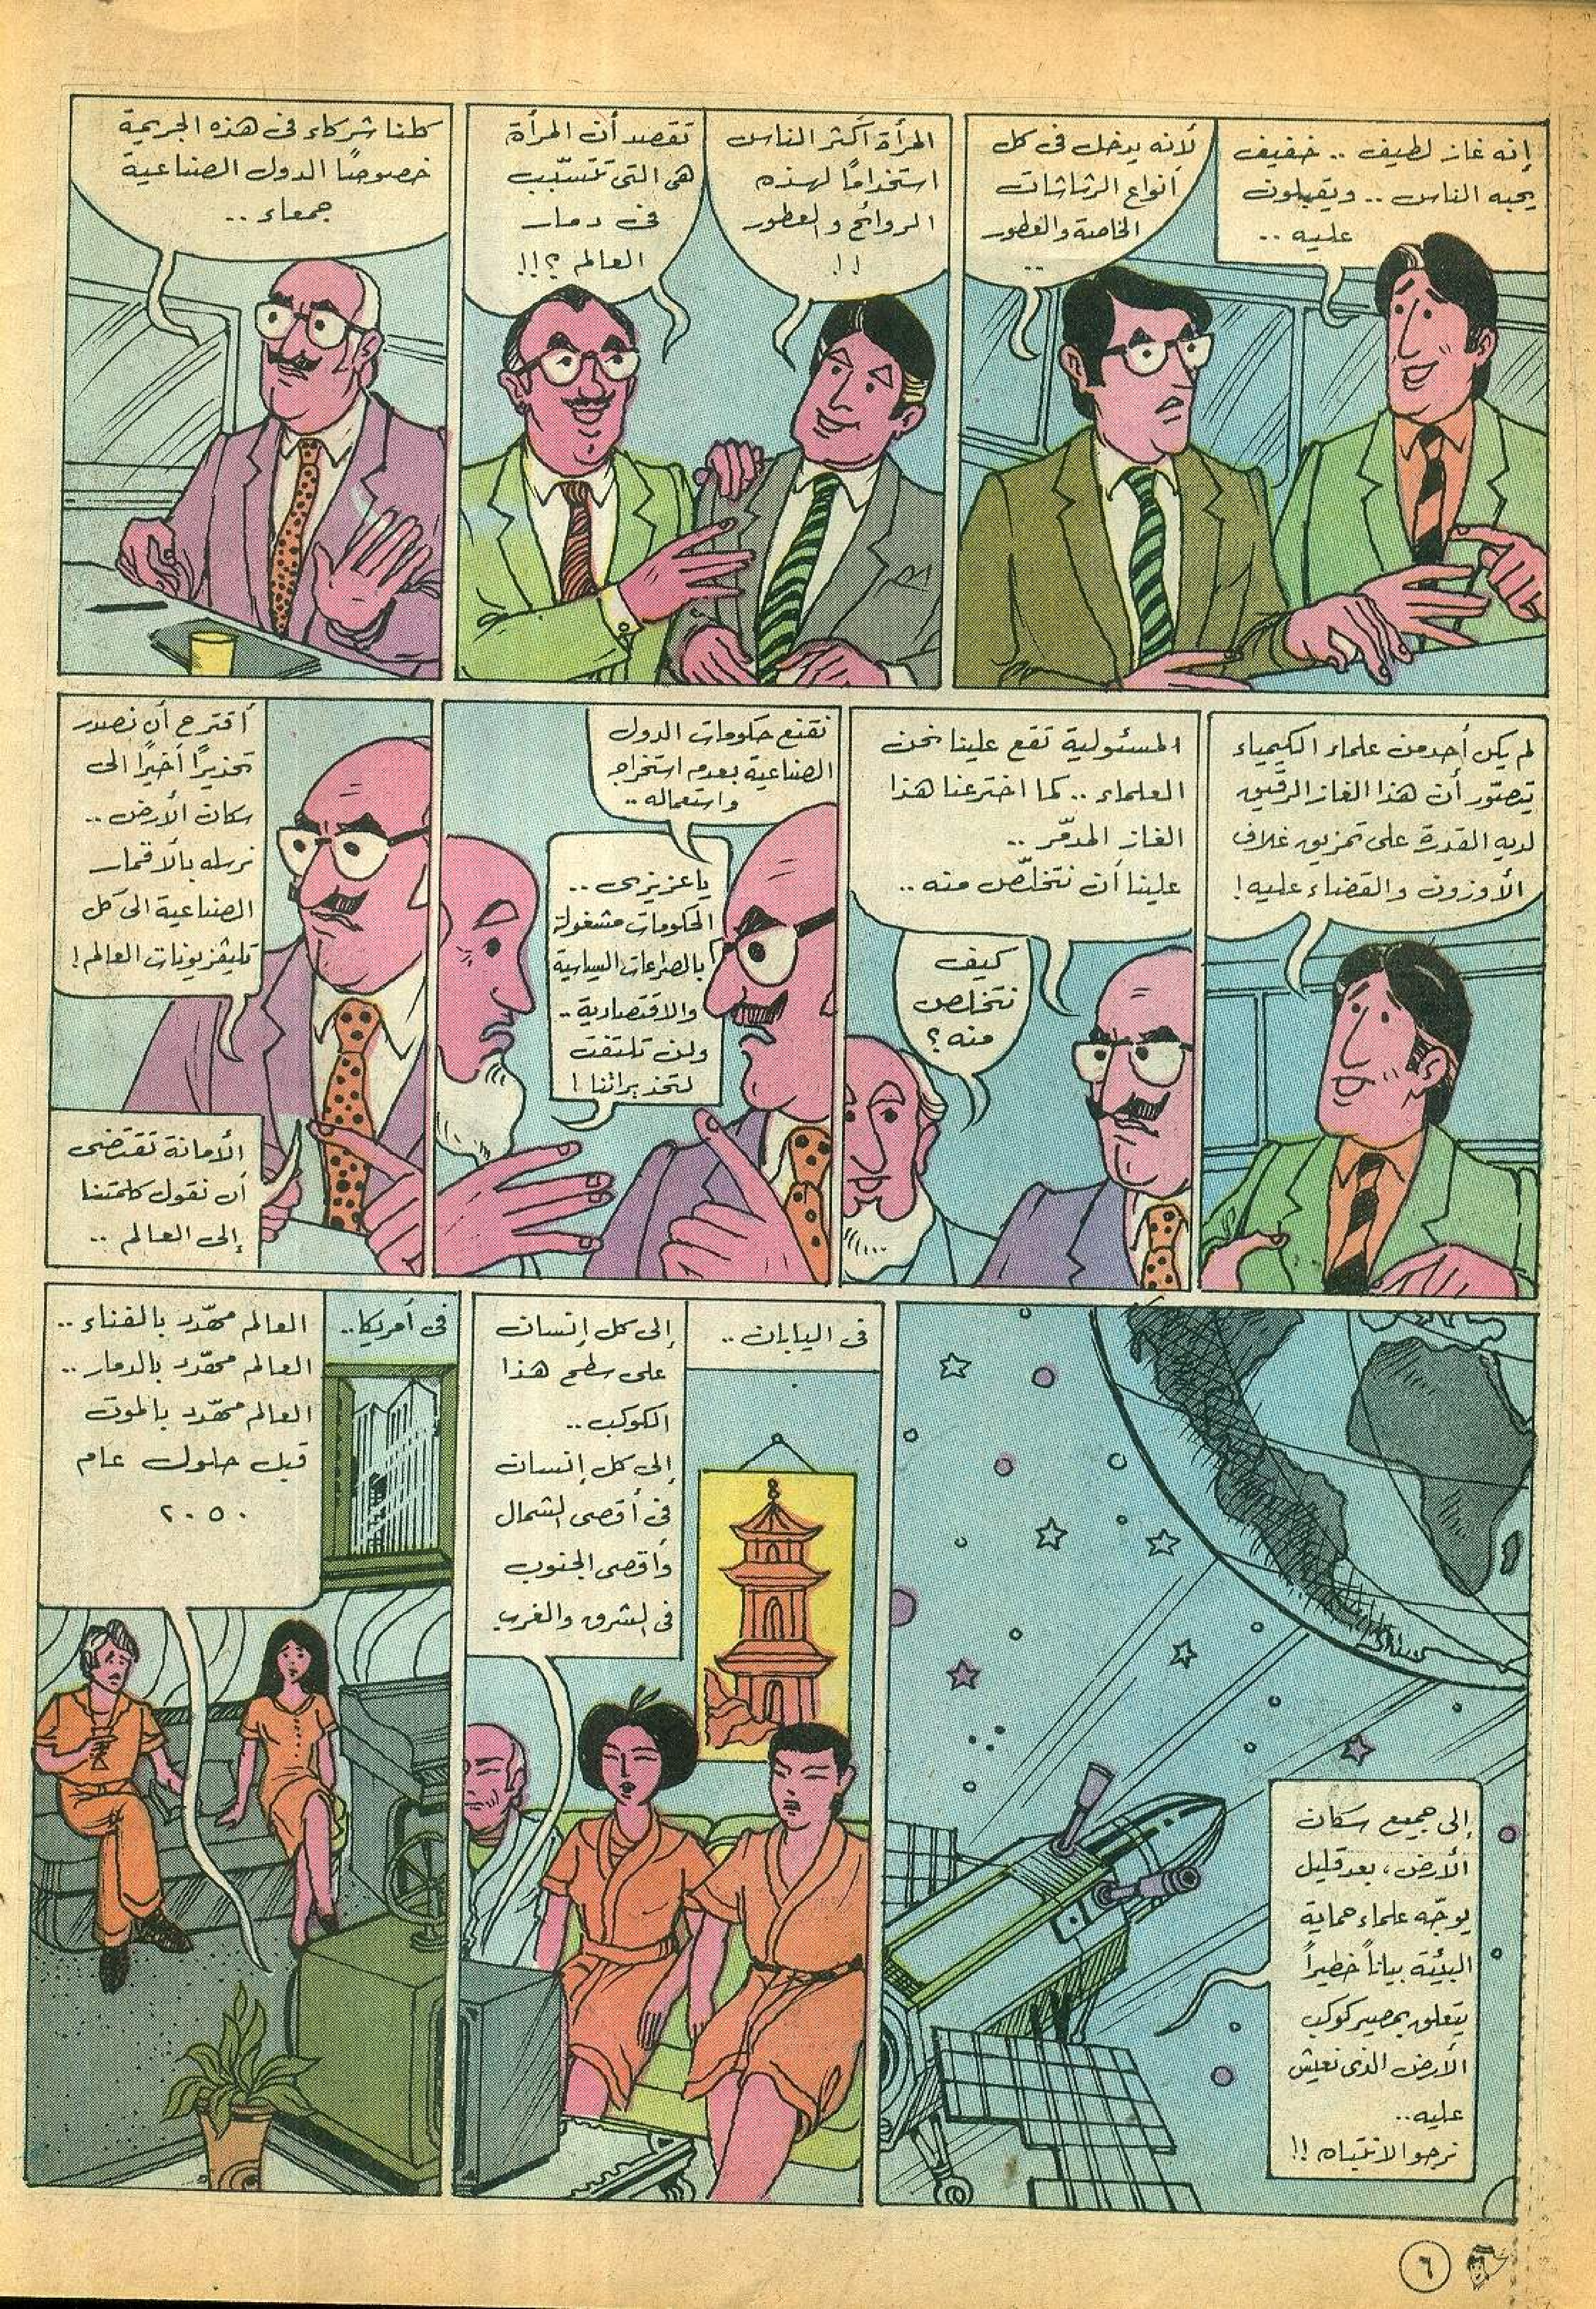 إنه غاز لطيف .. خفيف
يحبه الناس .. ويقبلون
عليه ..
لأنه يدخل فى كل
أنواع الرشاشات
الخاصة والعطور
..
المرأة أكثر الناس
استخدامًا لهذه
الروائح والعطور
!!
تقصد أن المرأة
هى التى تتسبّب
فى دمار
العالم ؟!!
كلنا شركاء فى هذه الجريمة
خصوصًا الدول الصناعية
جمعاء ..
لم يكن أحد من علماء الكيمياء
يتصوّر أن هذا الغاز الرقيق
لديه القدرة على تمزيق غلاف
الأوزون والقضاء عليه !
المسئولية تقع علينا نحن
العلماء .. كما اخترعنا هذا
الغاز المدمّر ..
علينا أن نتخلّص منه ..
كيف
نتخلص
منه ؟
نقنع حكومات الدول
الصناعية بعدم استخراج
واستعماله ..
يا عزيزى ..
الحكومات مشغولة
بالصراعات السياسية
والاقتصادية ..
ولن تلتفت
لتحذيراتنا !
أقترح أن نصدر
تحذيرًا أخيرًا الى
سكان الأرض ..
نرسله بالأقمار
الصناعية الى كل
تليفزيونات العالم !
الأمانة تقتضى
أن نقول كلمتنا
إلى العالم ..
إلى جميع سكان
الأرض ، بعد قليل
يوجّه علماء حماية
البيئة بيانًا خطيرًا
يتعلق بمصير كوكب
الأرض الذى نعيش
عليه ..
نرجو الانتباه !!
فى اليابان ..
إلى كل إنسان
على سطح هذا
الكوكب ..
إلى كل إنسان
فى أقصى الشمال
وأقصى الجنوب
فى الشرق والغرب
فى أمريكا ..
العالم مهدّد بالفناء ..
العالم مهدّد بالدمار ..
العالم مهدّد بالموت
قبل حلول عام
٢٠٥٠
٦